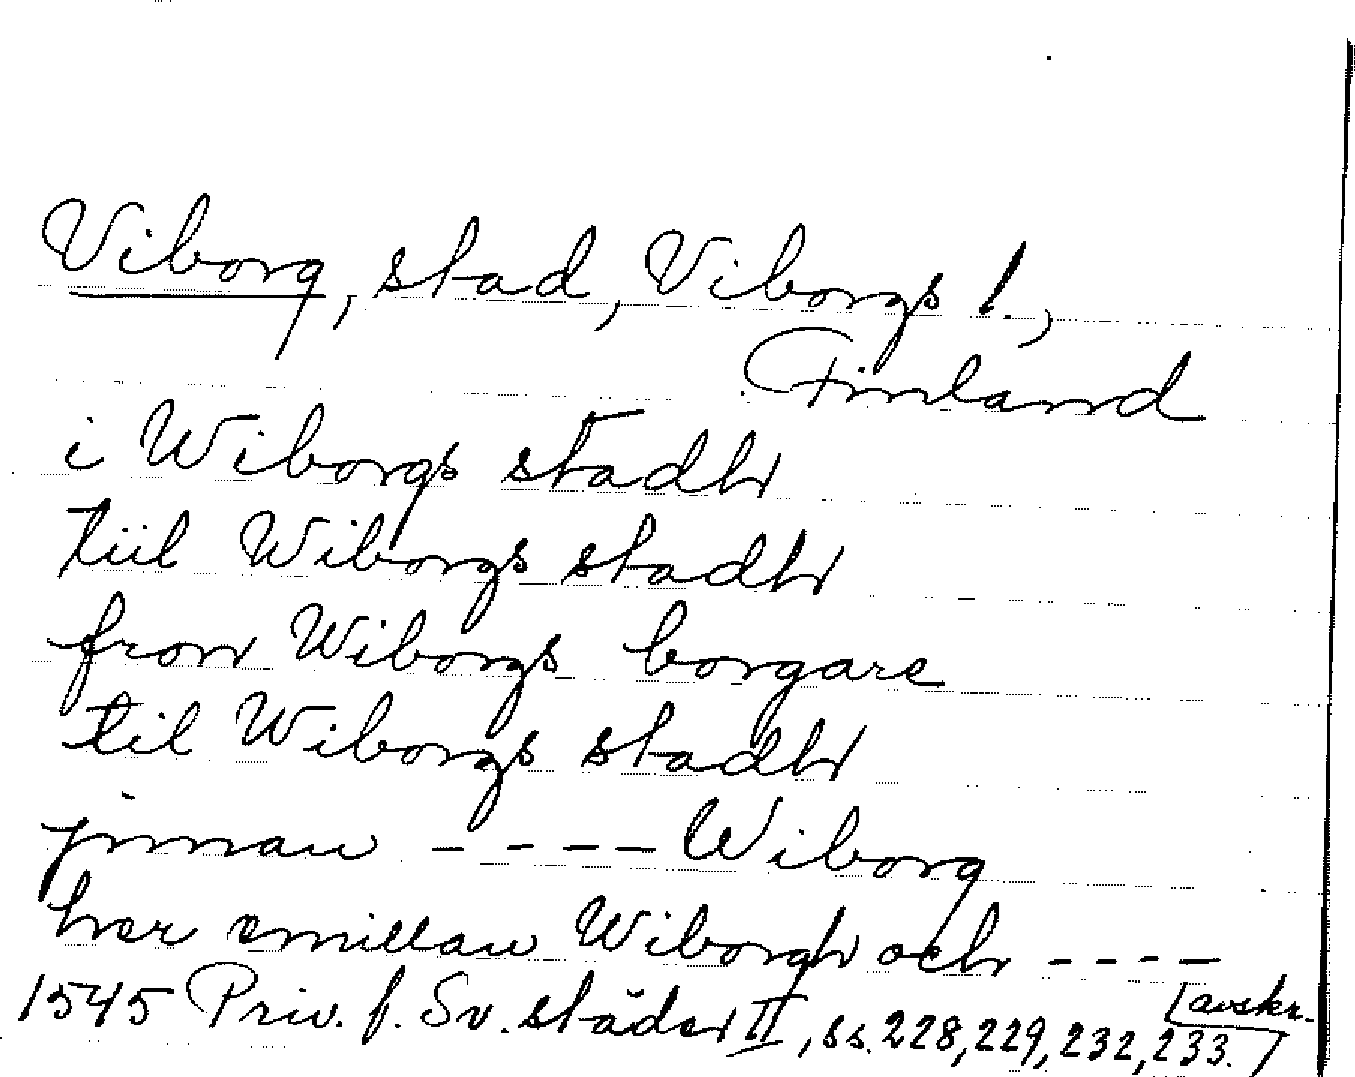 Viborg, stad, Viborgs l.,
Finland
i Wiborgs stadh
tiil Wiborgs stadh
fron Wiborgs borgare
til Wiborgs stadh
jnnan - - - - Wiborg
her emillan Wiborgh och - - - -
1545 Priv. f. Sv. städer II, ss. 228, 229, 232, 233. [avskr.]